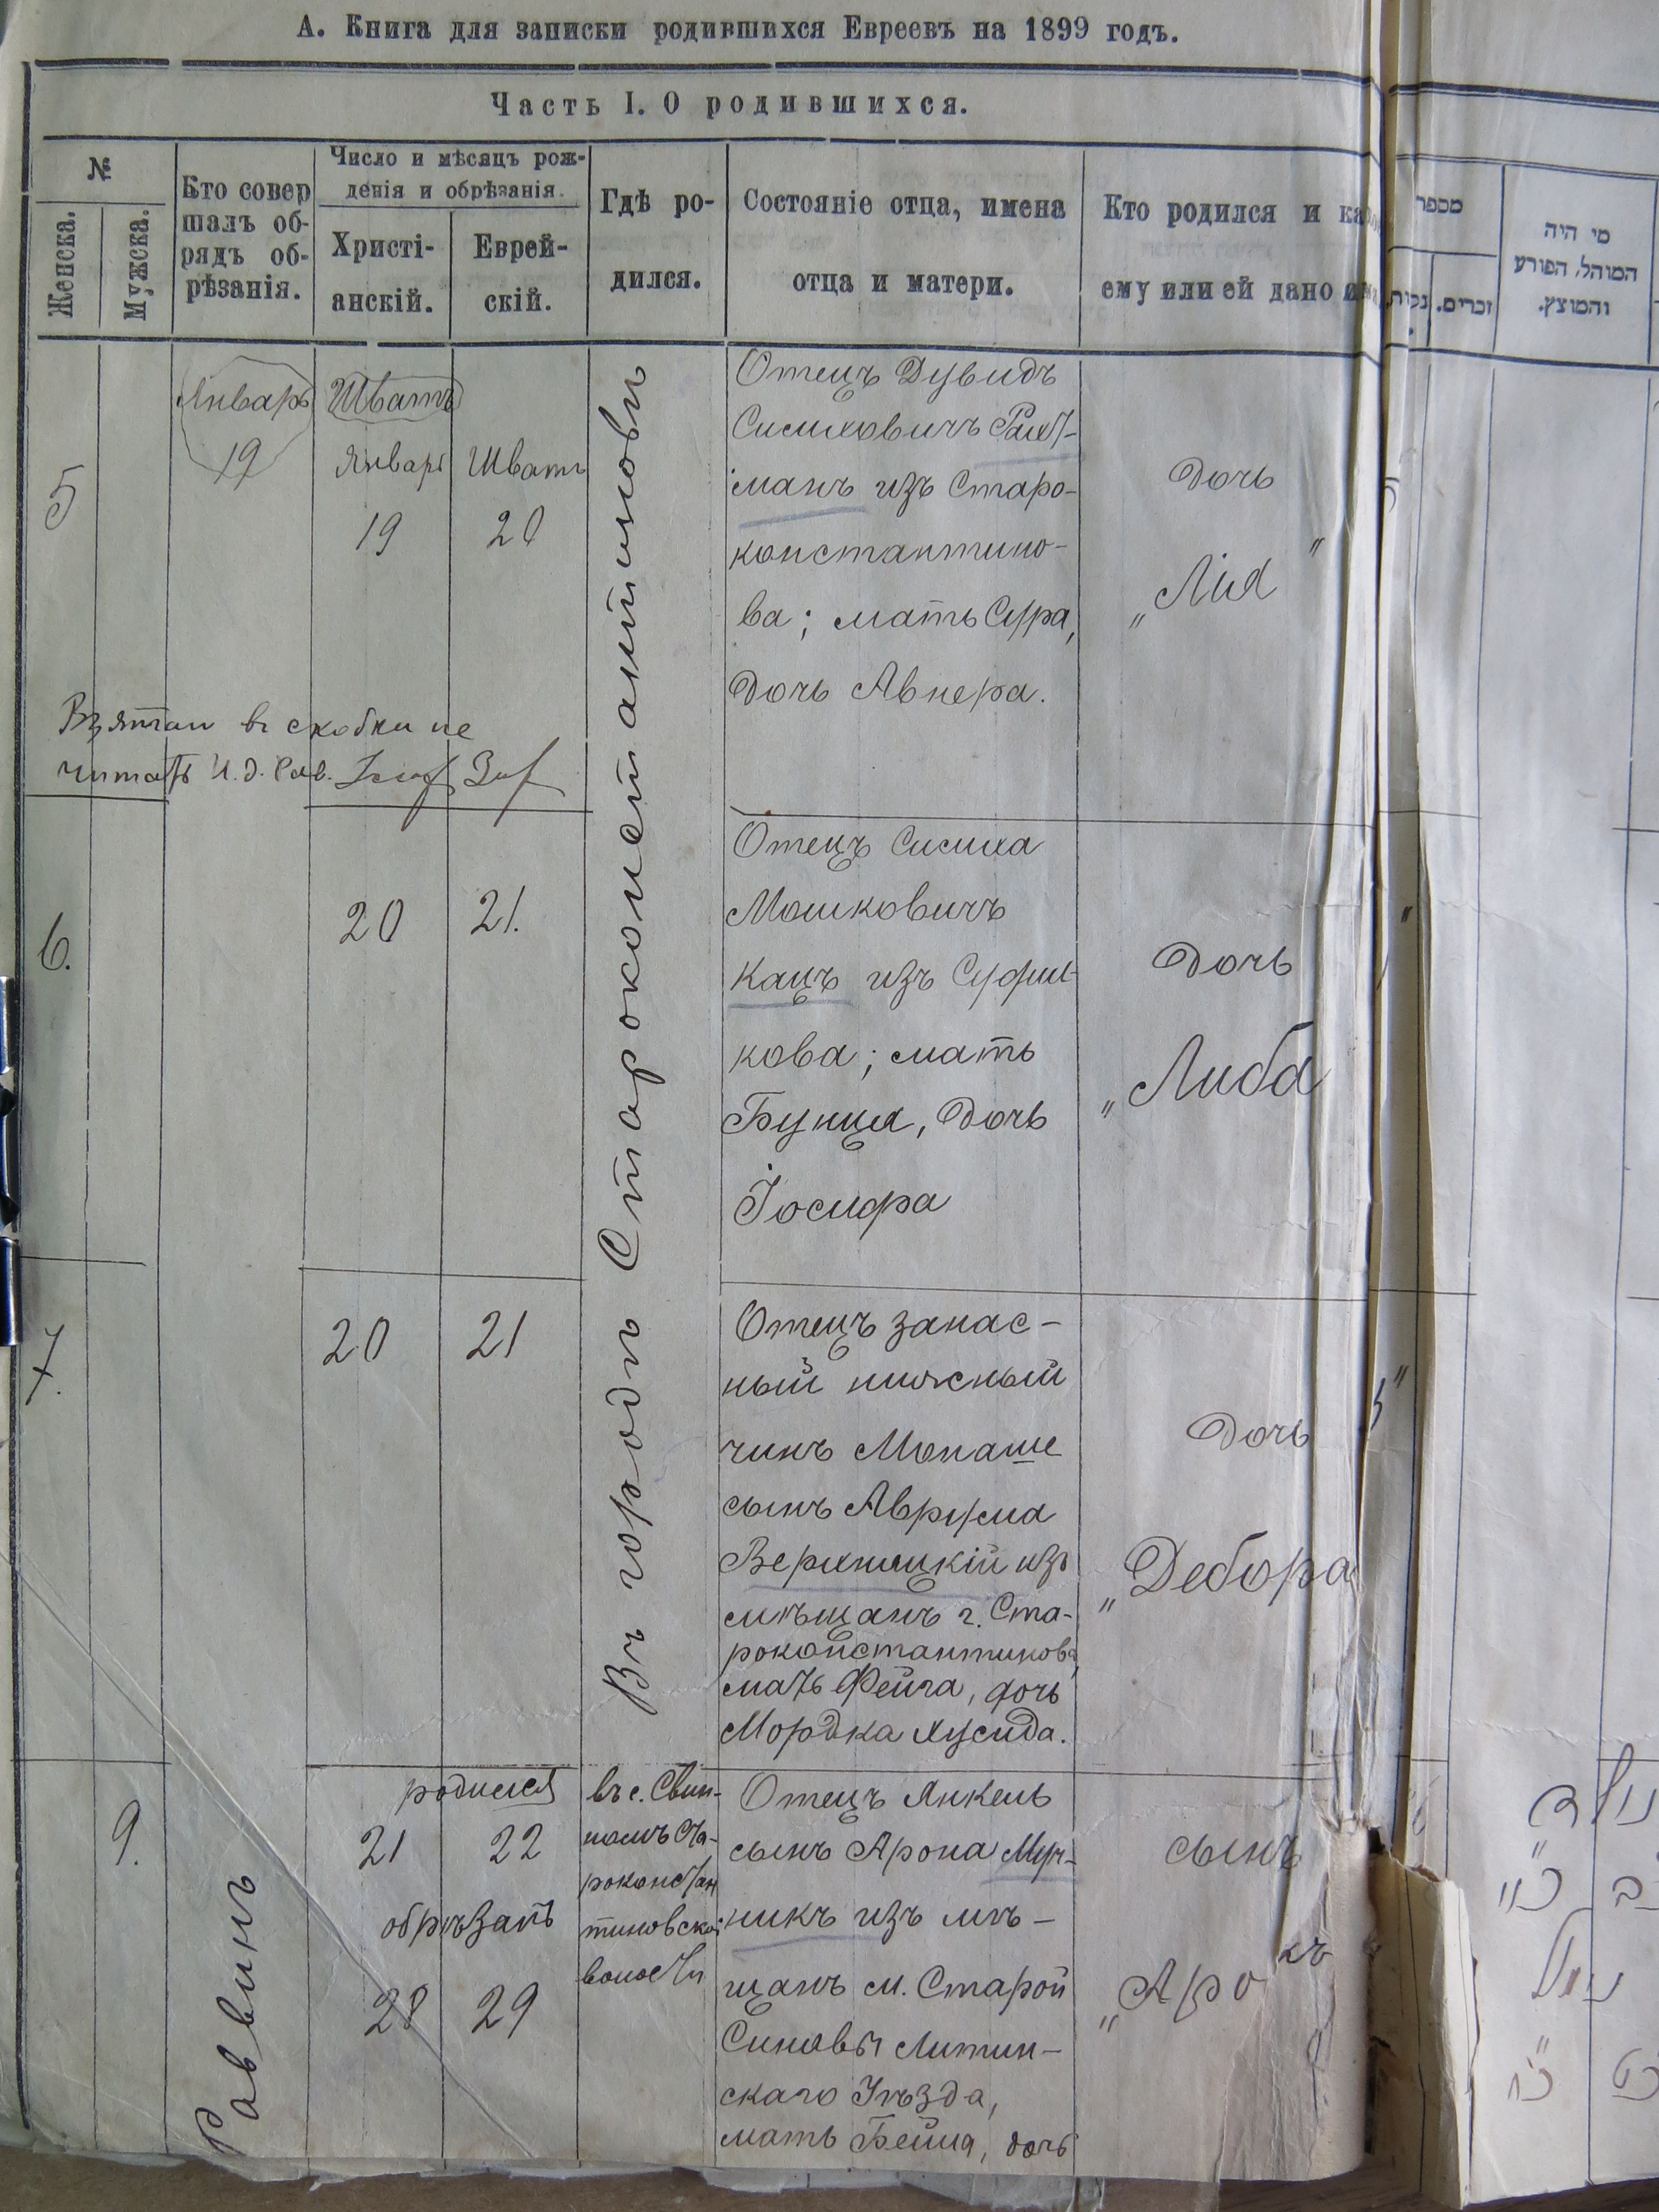 А. Книга для записки родившихся Евреевъ на 1899 годъ.
Часть I. О родившихся.
№
Женска.
Мужска.
Кто совер
шалъ об-
рядъ об-
рѣзанія.
Число и мѣсяцъ рож-
денія и обрѣзанія.
Христі-
анскій.
Еврей-
скій.
Гдѣ ро-
дился.
Состояніе отца, имена
отца и матери.
Кто родился и ка
ему или ей дано
מספר
זכרים.
מי היה
המוהל, הפורע
והמוצץ.
5
Январь
19
Шватъ
Январь
19
Шватъ
20
Въ городѣ Староконстантиновѣ
Отецъ Дувидъ
Сисиховичъ
манъ изъ Старо-
константино-
ва; мать Сура,
дочь Авнера.
Дочь
„Лія"
Взятаи въ скобки не
читать И. д. Рав.
6.
20
21.
Отецъ Сисиха
Мошковичъ
Кацъ изъ
кова; мать
Бунця, дочь
Іосифа
Дочь
„Либа
7.
20
21
Отецъ запас-
ный нижный
чинъ Монаше
сынъ Аврума
изъ
мѣщанъ г. Ста-
роконстантинова
мать Фейга, дочь
Мордка Хусида.
Дочь
„Дебора
9.
Раввинъ
родился
21
22
обрѣзанъ
28
29
въ с. Свин-
номъ Ста-
роконстан
тиновской
волости
Отецъ Янкель
сынъ Арона Муч-
никъ изъ мѣ-
щанъ м. Старой
Синявы Литин-
скаго Уѣзда,
мать Бейла, дочь
сынъ
„Аро